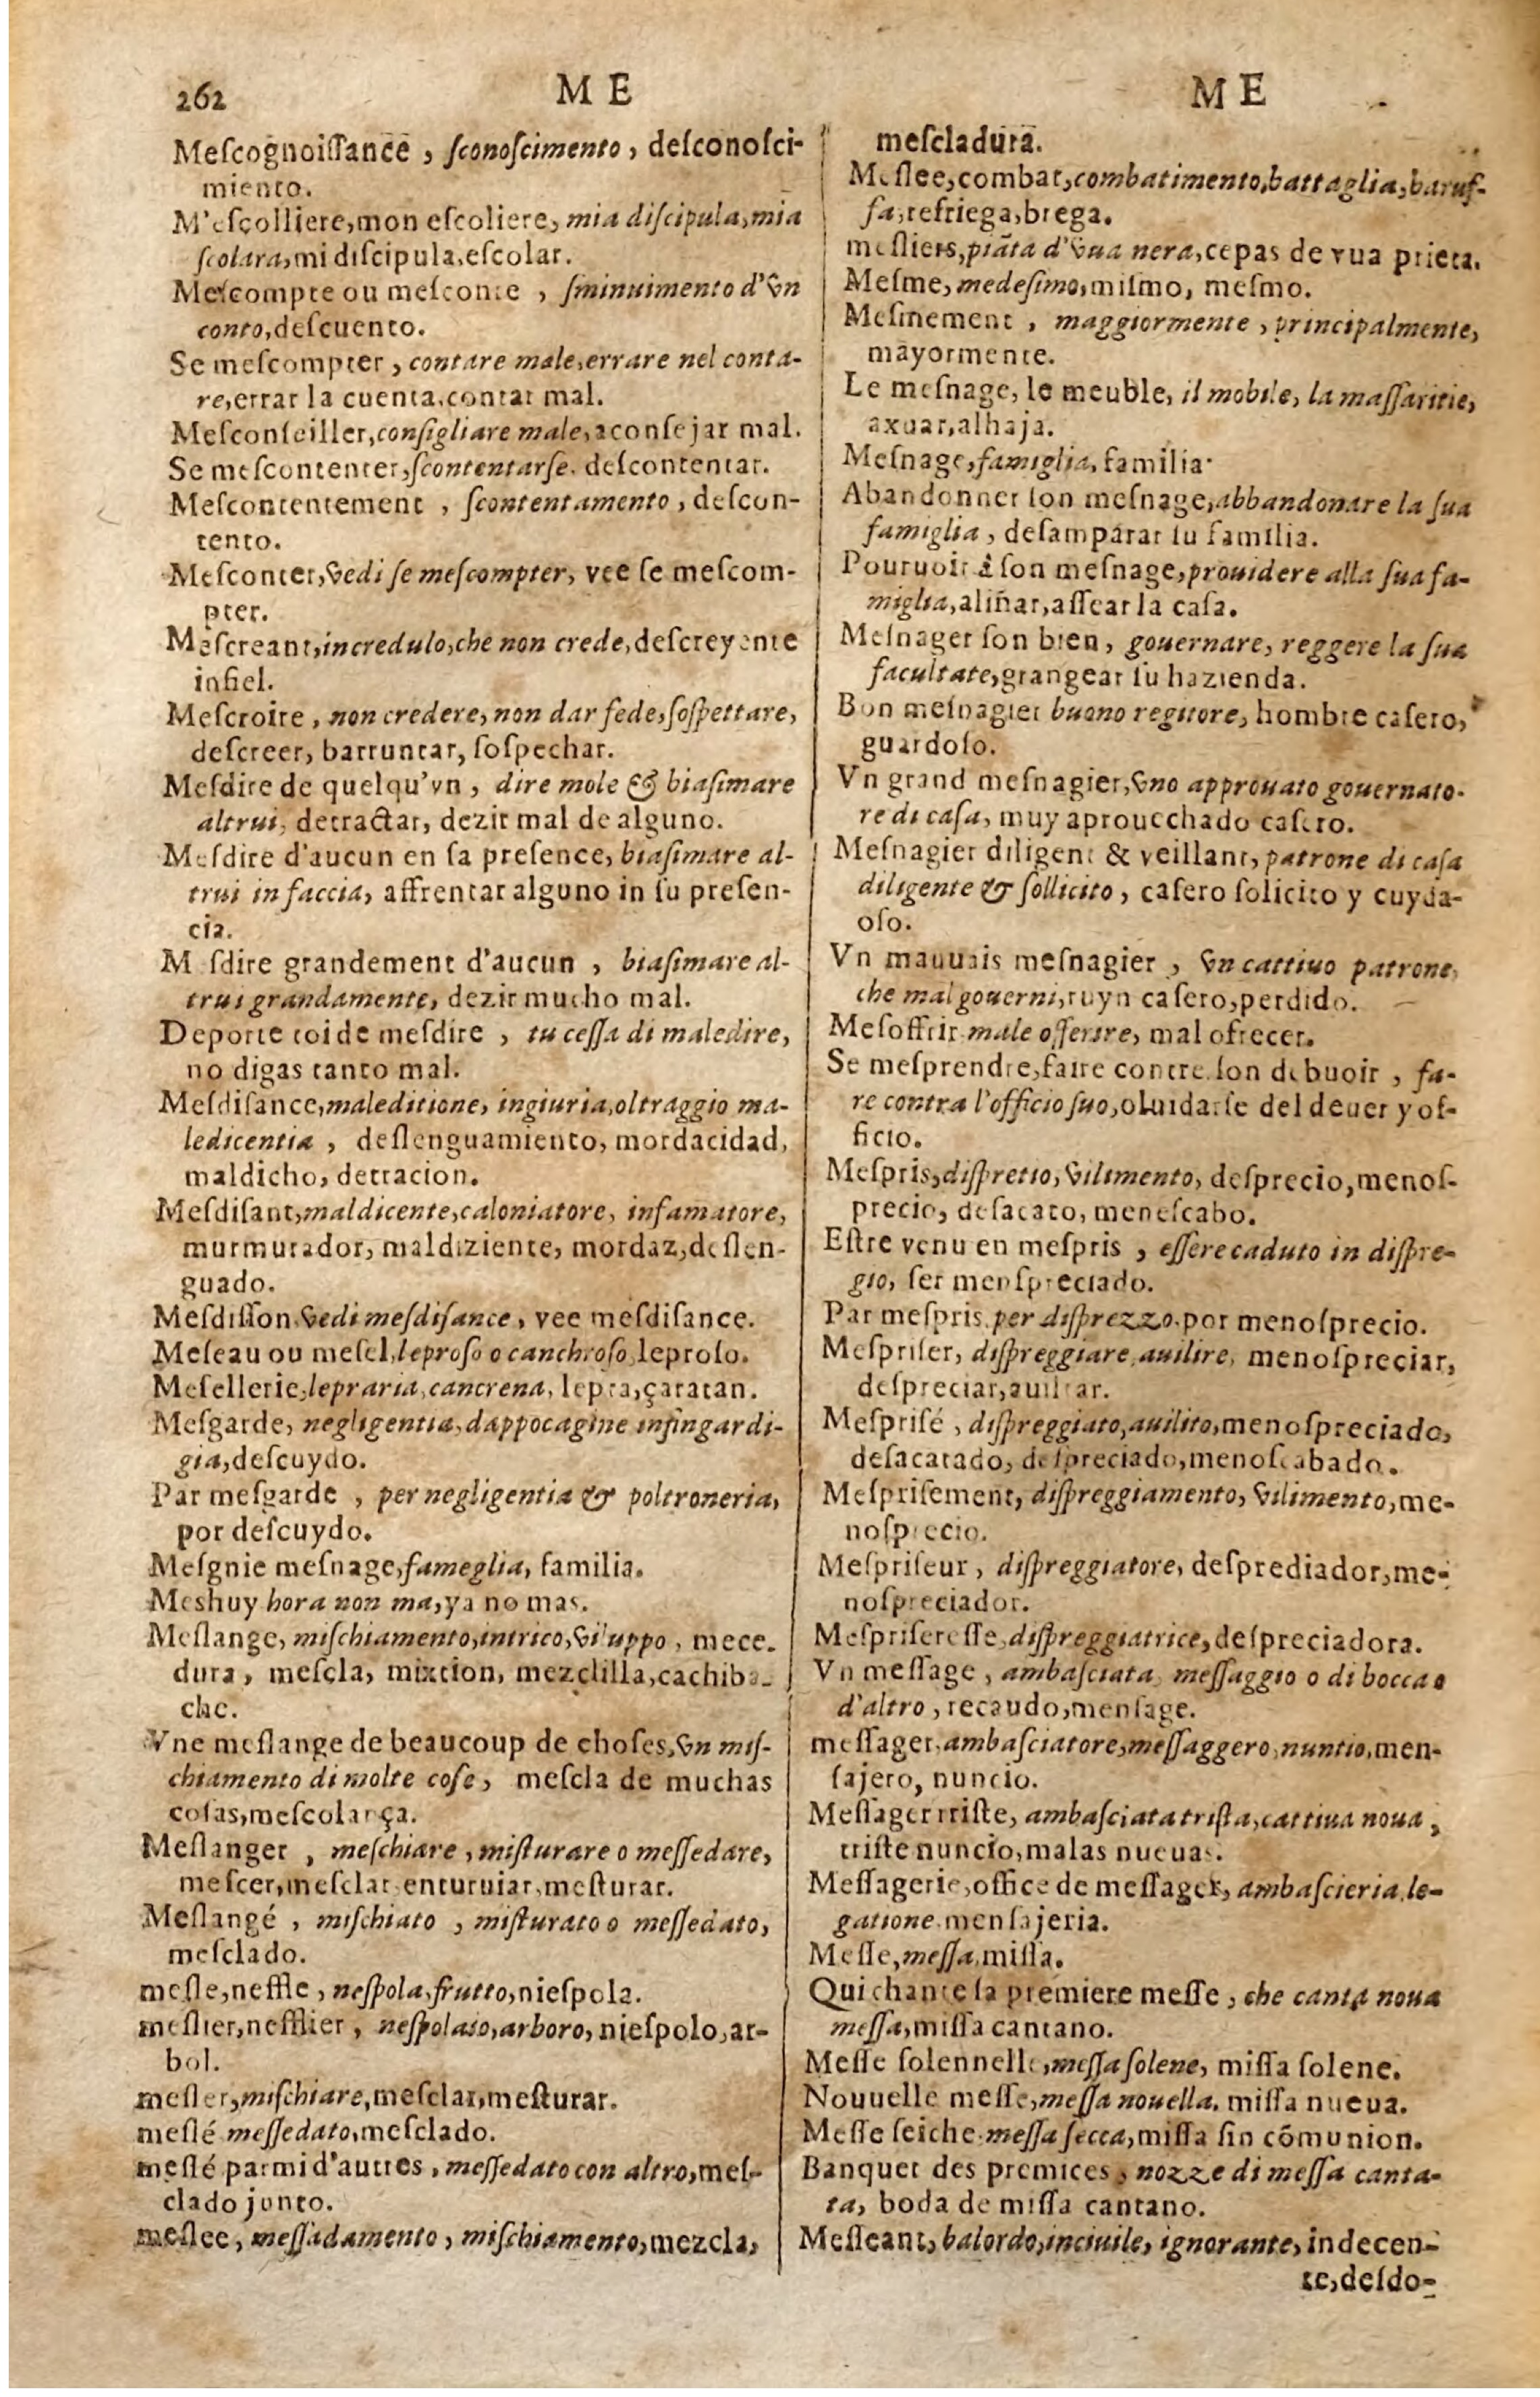 262
M E
M E
Meſcognoiſſance, ſconoſcimento, deſconoſci-
miento.
M'eſcolliere, mon eſcoliere, mia diſcipula, mia
ſcolara, mi diſcipula, eſcolar.
Meſcompte ou meſconte, ſminuimento d'vn
conto, deſcuento.
Se meſcompter, contare male, errare nel conta-
re, errar la cuenta, contar mal.
Meſconſeiller, conſigliare male, aconſejar mal.
Se meſcontenter, ſcontentarſe. deſcontentar.
Meſcontentement, ſcontentamento, deſcon-
tento.
Meſconter, vedi ſe meſcompter, vee ſe meſcom-
pter.
Meſcreant, incredulo, che non crede, deſcreyente
infiel.
Meſcroire, non credere, non dar fede, ſoſpettare,
deſcreer, barruntar, ſoſpechar.
Meſdire de quelqu'vn, dire mole & biaſimare
altrui, detractar, dezir mal de alguno.
Meſdire d'aucun en ſa preſence, biaſimare al-
trui in faccia, affrentar alguno in ſu preſen-
cia.
M ſdire grandement d'aucun, biaſimare al-
trui grandamente, dezir mucho mal.
Deporte toi de meſdire, tu ceſſa di maledire,
no digas tanto mal.
Meſdiſance, maleditione, ingiuria, oltraggio ma-
ledicentia, deſlenguamiento, mordacidad,
maldicho, detracion.
Meſdiſant, maldicente, caloniatore, infamatore,
murmurador, maldiziente, mordaz, deſlen-
guado.
Meſdiſſon, vedi meſdiſance, vee meſdiſance.
Meſeau ou meſel, leproſo o canchroſo, leproſo.
Meſellerie, lepraria, cancrena, lepra, çaratan.
Meſgarde, negligentia, dappocagine infingardi-
gia, deſcuydo.
Par meſgarde, per negligentia & poltroneria,
por deſcuydo.
Meſgnie meſnage, fameglia, familia.
Meshuy hora non ma, ya no mas.
Meſlange, miſchiamento, intrico, viluppo, mece-
dura, meſcla, mixtion, mezclilla, cachiba-
che.
Vne meſlange de beaucoup de choſes, vn miſ-
chiamento di molte coſe, meſcla de muchas
coſas, meſcolança.
Meſlanger, meſchiare, miſturare o meſſedare,
meſcer, meſclar enturuiar, meſturar.
Meſlangé, miſchiato, miſturato o meſſedato,
meſclado.
meſle, neffle, neſpola, frutto, nieſpola.
meſlier, nefflier, neſpolaio, arboro, nieſpolo, ar-
bol.
meſler, miſchiare, meſclar, meſturar.
meſlé meſſedato, meſclado.
meſlé parmi d'autres, meſſedato con altro, meſ-
clado junto.
meſlee, meſſadamento, miſchiamento, mezcla,
meſcladura.
Meſlee, combat, combatimento, battaglia, baruf-
fa, refriega, brega.
meſliers, piãta d'vua nera, cepas de vua prieta.
Meſme, medeſimo, miſmo, meſmo.
Meſmement, maggiormente, principalmente,
mayormente.
Le meſnage, le meuble, il mobile, la maſſaritie,
axuar, alhaja.
Meſnage, famiglia, familia.
Abandonner ſon meſnage, abbandonare la ſua
famiglia, deſamparar ſu familia.
Pouruoir à ſon meſnage, prouidere alla ſua fa-
miglia, aliñar, aſſear la caſa.
Meſnager ſon bien, gouernare, reggere la ſua
facultate, grangear ſu hazienda.
Bon meſnagier buono regitore, hombre caſero,
guardoſo.
Vn grand meſnagier, vno approuato gouernato-
re di caſa, muy aprouechado caſero.
Meſnagier diligent & veillant, patrone di caſa
diligente & ſollicito, caſero ſolicito y cuyda-
oſo.
Vn mauuais meſnagier, vn cattiuo patrone,
che mal gouerni, ruyn caſero, perdido.
Meſoffrir male offerire, mal ofrecer.
Se meſprendre, faire contre ſon debuoir, fa-
re contra l'officio ſuo, oluidarſe del deuer y of-
ficio.
Meſpris, diſpretio, vilimento, deſprecio, menoſ-
precio, deſacato, meneſcabo.
Eſtre venu en meſpris, eſſere caduto in diſpre-
gio, ſer menſpreciado.
Par meſpris, per diſprezzo, por menoſprecio.
Meſpriſer, diſpreggiare, auilire, menoſpreciar,
deſpreciar, auiltar.
Meſpriſé, diſpreggiato, auilito, menoſpreciado,
deſacatado, deſpreciado, menoſcabado.
Meſpriſement, diſpreggiamento, vilimento, me-
noſprecio.
Meſpriſeur, diſpreggiatore, deſprediador, me-
noſpreciador.
Meſpriſereſſe, diſpreggiatrice, deſpreciadora.
Vn meſſage, ambaſciata, meſſaggio o di bocca o
d'altro, recaudo, menſage.
meſſager, ambaſciatore, meſſaggero, nuntio, men-
ſajero, nuncio.
Meſſager triſte, ambaſciata triſta, cattiua noua,
triſte nuncio, malas nueuas.
Meſſagerie, office de meſſager, ambaſcieria, le-
gatione, menſajeria.
Meſſe, meſſa, miſſa.
Qui chante ſa premiere meſſe, che canta noua
meſſa, miſſa cantano.
Meſſe ſolennelle, meſſa ſolene, miſſa ſolene.
Nouuelle meſſe, meſſa nouella, miſſa nueua.
Meſſe ſeiche, meſſa ſecca, miſſa ſin cõmunion.
Banquet des premices, nozze di meſſa canta-
ta, boda de miſſa cantano.
Meſſeant, balordo, inciuile, ignorante, indecen-
te, deſdo-